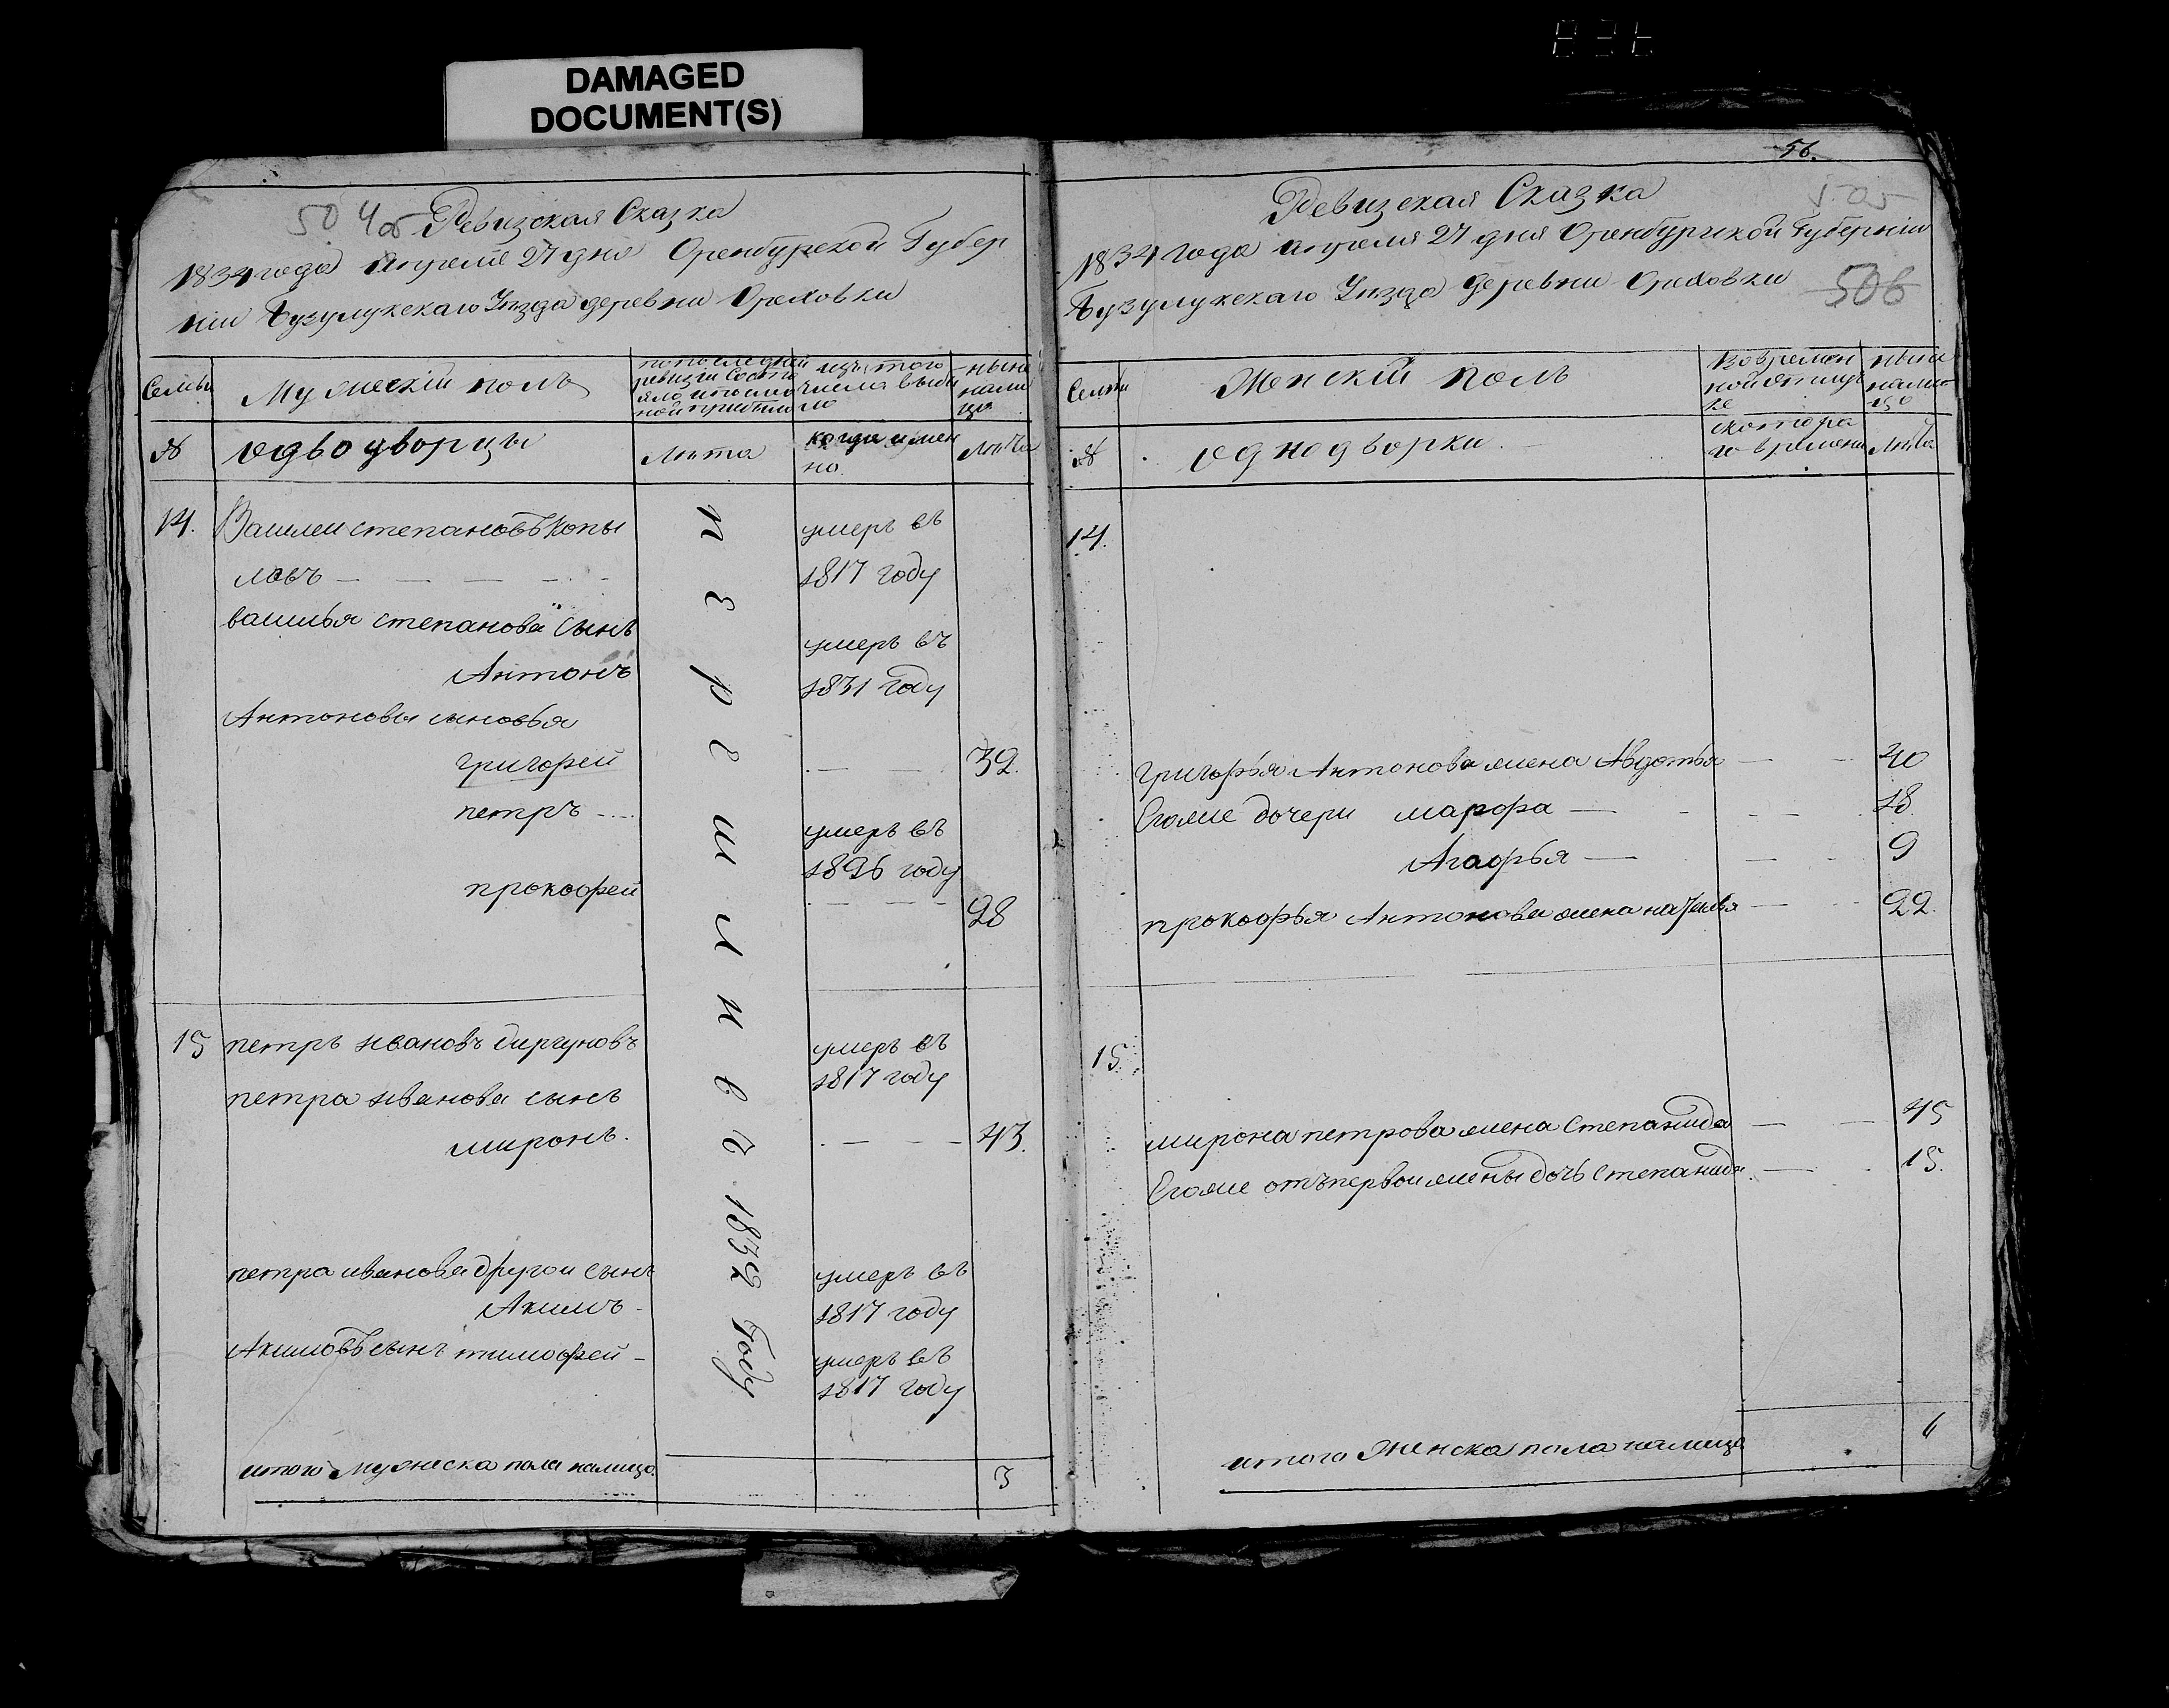 DAMAGED
DOCUMENT(S)
504об Ревизская Сказка
1834 года апреле 27 дня Оренбурской Губер
нiи Бузулукскаго Уѣзда деревни Ореховки
Семьи
Мужескiй полъ
по последней
ревизiи состо
яло и после
ной прибыло
изъ того
числа выбы
ло
ныне
нали
цо
№
одводворцы
лѣта
когда имен
но
лѣта
14. Василеи степановъ копы
ловъ
умеръ въ
1817 году
василья степанова сынъ
Антонъ
умеръ въ
1831 году
Антоновы сыновья
григорей 32.
петръ
умеръ въ
1826 году
прокофей 28
15 петръ ивановъ Сиргуновъ
умеръ въ
1817 году
петра иванова сынъ
миронъ. 43.
петра иванова другои сынъ
Акимъ
умеръ въ
1817 году
Акимовъ сынъ тимофей
умеръ въ
1817 году
перешли въ С 1832 году
итого мужеска пола налицо 3
56.
505
506
Ревизская Сказка
1834 года апреля 27 дня Оренбургской Губернiи
Бузулукскаго Уѣзда деревни Ореховки
Семьи
Женскiй полъ
во времен
ной отлуч
ке
ныне
нали
цо
№
однодворки.
с котора
го времени
лѣта
14.
григорья Антонова жена Авдотья 40
Егоже дочери марфа 18.
Агафья 9
прокофья Антонова жена наталья 22.
15.
мирона петрова жена Степанида 45
Егоже отъ первои жены дочь Степанида 15.
итого женска пола налицо 6